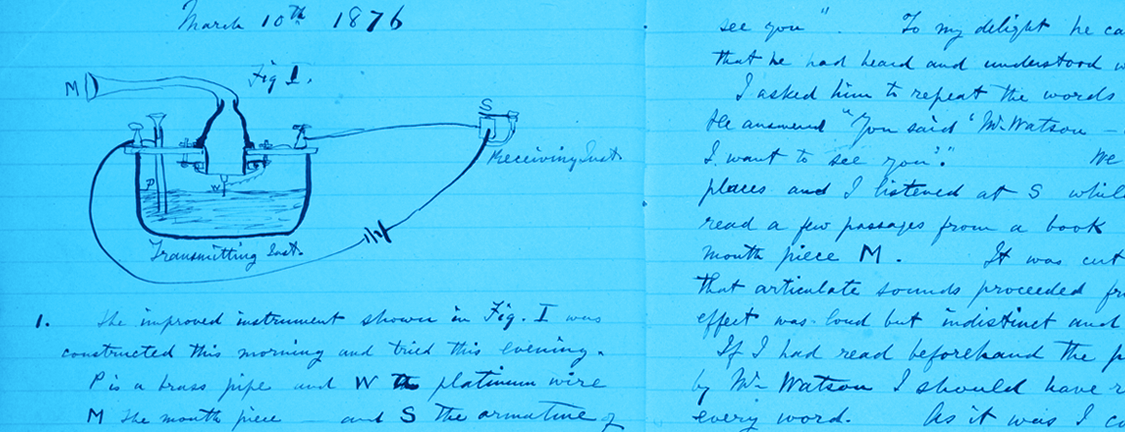 March 10th 1876
Fig 1.
M
S
Receiving Inst.
P
W
Transmitting Inst.
1. The improved instrument shown in Fig. I was
constructed this morning and tried this evening.
P is a brass pipe and W the platinum wire
M the mouth piece — and S the armature of
see you". To my delight he ca
that he had heard and understood w
I asked him to repeat the words
He answered "You said 'Mr. Watson —
I want to see you'." We
places and I listened at S whil
read a few passages from a book
mouth piece M. It was cert
that articulate sounds proceeded fr
effect was loud but indistinct and
If I had read beforehand the p
by Mr Watson I should have r
every word. As it was I co